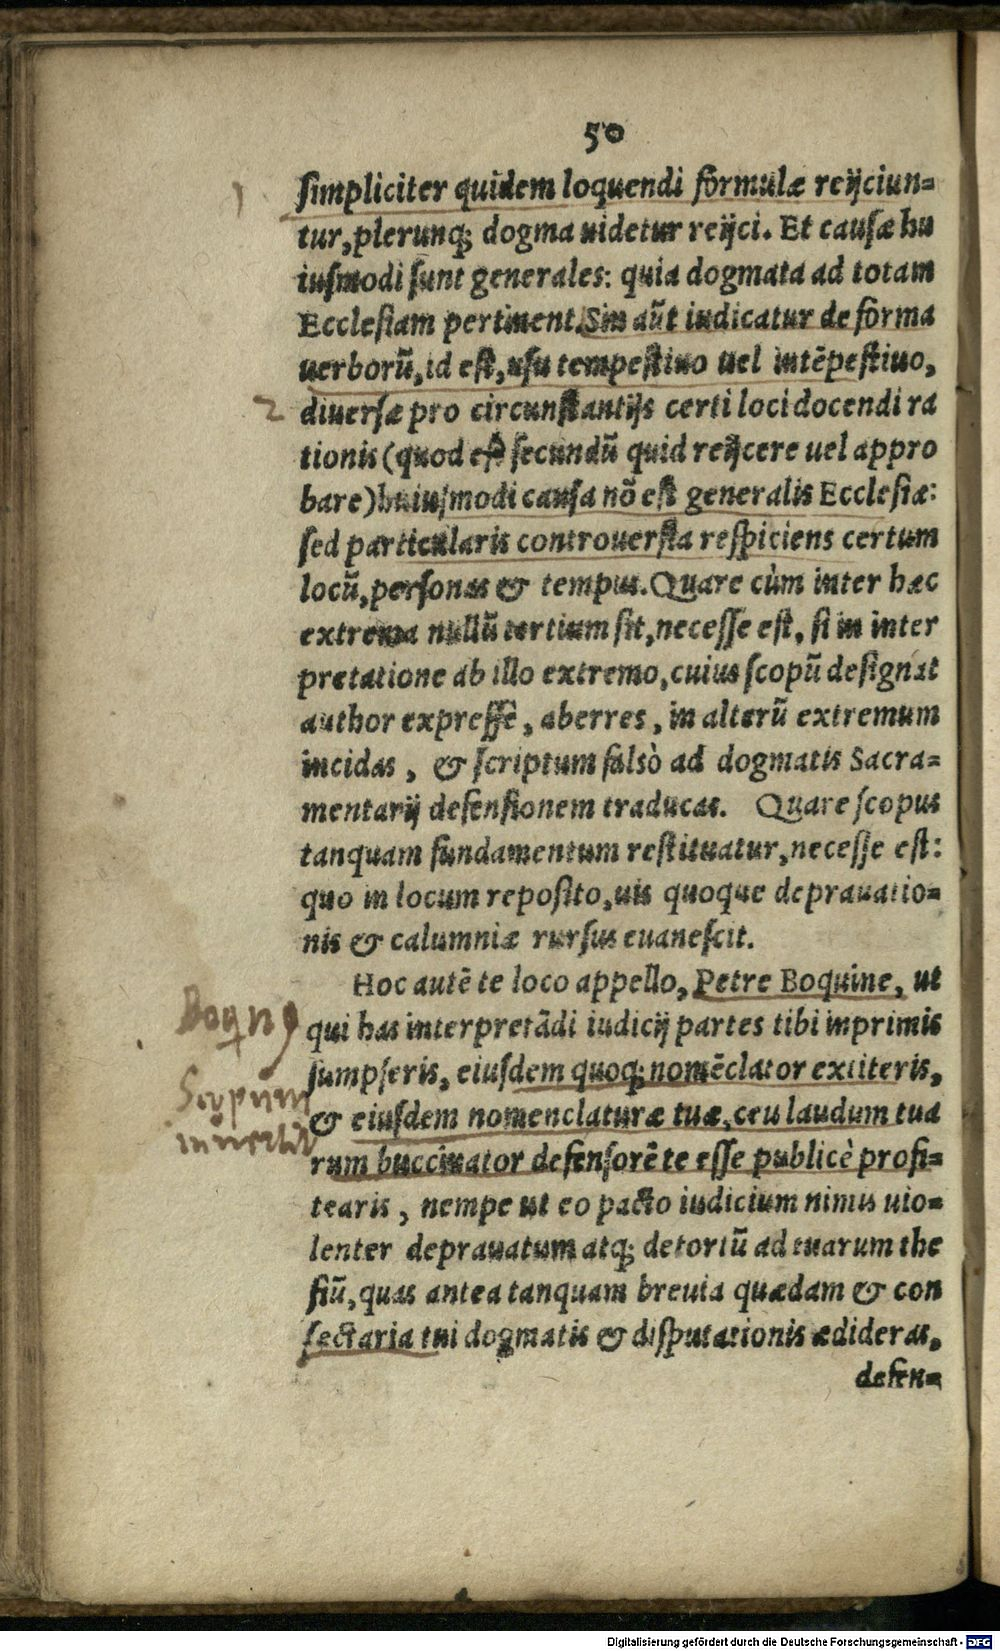 50
simpliciter quidem loquendi formulæ reijciun=
tur, plerunq; dogma uidetur reijci. Et causæ hu
iusmodi sunt generales: quia dogmata ad totam
Ecclesiam pertinent. Sin aũt iudicatur de forma
uerborũ, id est, usu tempestiuo uel intẽpestiuo,
2 diuersæ pro circunstantijs certi loci docendi ra
tionis (quod est secundũ quid reijcere uel appro
bare) huiusmodi causa nõ est generalis Ecclesiæ:
sed particularis controuersia respiciens certum
locũ, personas & tempus. Quare cùm inter hæc
extrema nullũ tertium sit, necesse est, si in inter
pretatione ab illo extremo, cuius scopũ designat
author expressè, aberres, in alterũ extremum
incidas, & scriptum falsò ad dogmatis Sacra=
mentarij defensionem traducas. Quare scopus
tanquam fundamentum restituatur, necesse est:
quo in locum reposito, uis quoque deprauatio=
nis & calumniæ rursus euanescit.
Hoc autẽ te loco appello, Petre Boquine, ut
qui has interpretãdi iudicij partes tibi inprimis
sumpseris, eiusdem quoq; nomẽclator extiteris,
& eiusdem nomenclaturæ tuæ, ceu laudum tua
rum buccinator defensorẽ te esse publicè profi=
tearis, nempe ut eo pacto iudicium nimis uio=
lenter deprauatum atq; detortũ ad tuarum the
siũ, quas antea tanquam breuia quædam & con
sectaria tui dogmatis & disputationis ædideras,
defen=
Scopum
inuertit
Digitalisierung gefördert durch die Deutsche Forschungsgemeinschaft - DFG